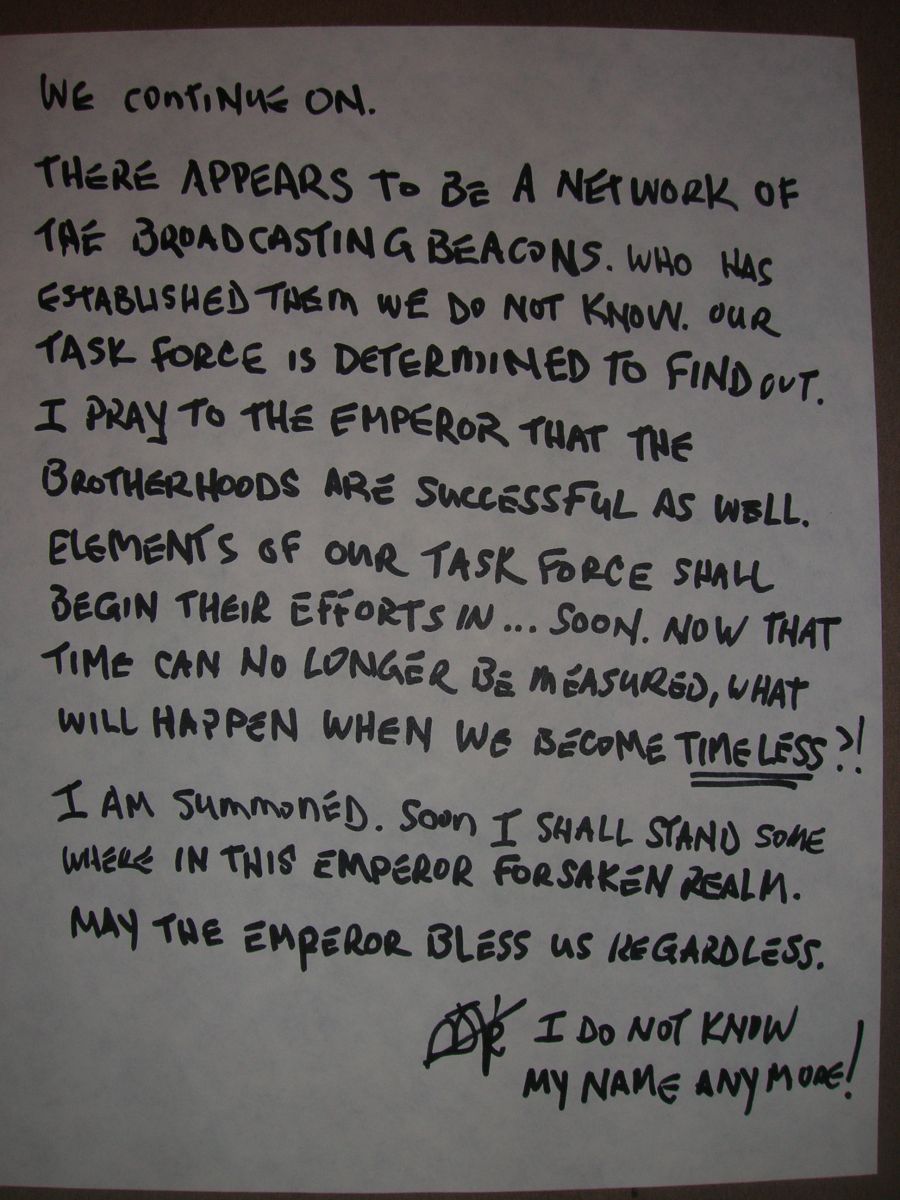 WE CONTINUE ON.
THERE APPEARS TO BE A NETWORK OF
THE BROADCASTING BEACONS. WHO HAS
ESTABLISHED THEM WE DO NOT KNOW. OUR
TASK FORCE IS DETERMINED TO FIND OUT.
I PRAY TO THE EMPEROR THAT THE
BROTHERHOODS ARE SUCCESSFUL AS WELL.
ELEMENTS OF OUR TASK FORCE SHALL
BEGIN THEIR EFFORTS IN... SOON. NOW THAT
TIME CAN NO LONGER BE MEASURED, WHAT
WILL HAPPEN WHEN WE BECOME TIMELESS?!
I AM SUMMONED. SOON I SHALL STAND SOME
WHERE IN THIS EMPEROR FORSAKEN REALM.
MAY THE EMPEROR BLESS US REGARDLESS.
I DO NOT KNOW
MY NAME ANYMORE!